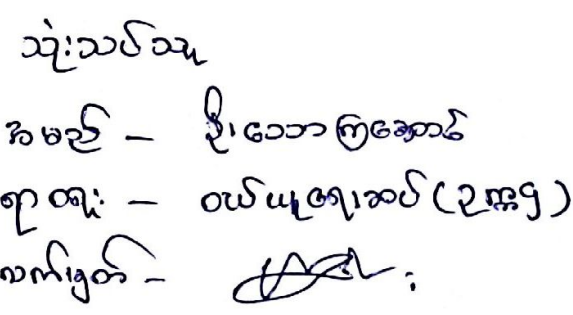 သုံးသပ်သူ
အမည် - ဦးဘောကြဆောင်
ရာထူး - ဝယ်ယူရေးအုပ် (ဥက္ကဋ္ဌ)
လက်မှတ် -